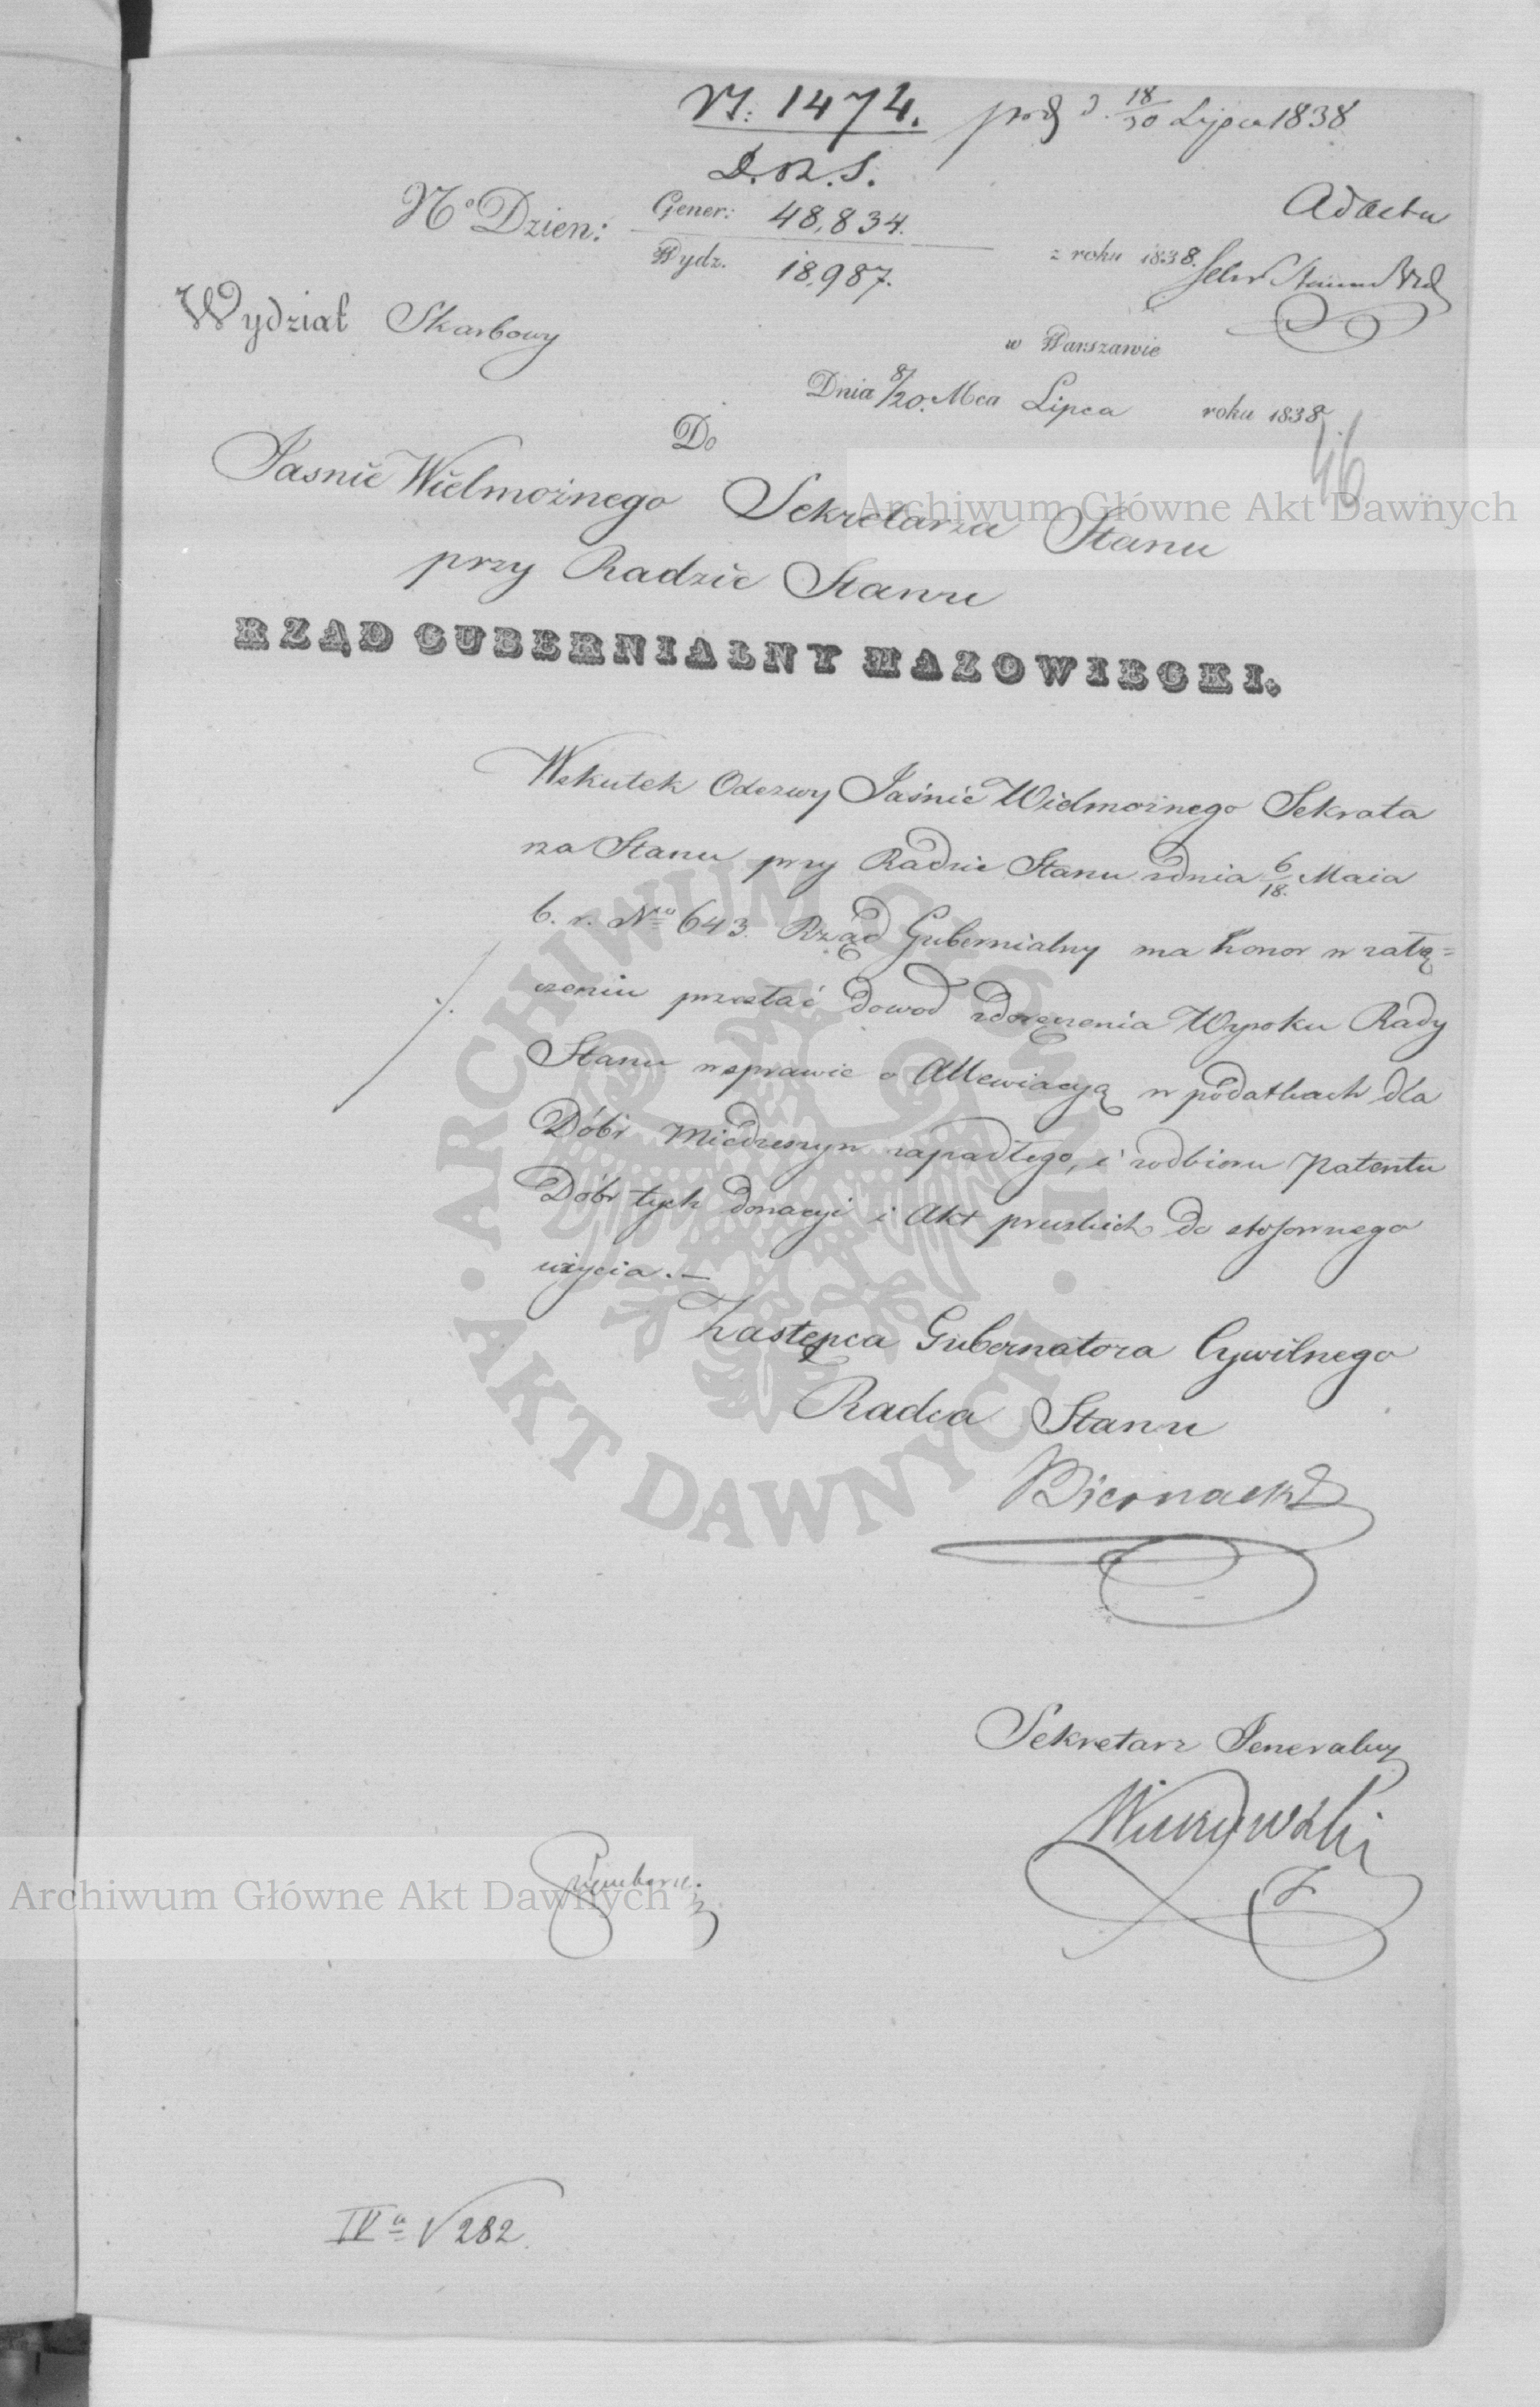 N: 1474.
D. R. S.
d. 18/30 Lipca 1838
Ad acta
No Dzien: Gener: 48,834.
Wydz. 18,987.
z roku 1838.
Wydział Skarbowy
w Warszawie
Dnia 8/20. Mca Lipca roku 1838.
46
Do
Jasnie Wielmożnego Sekretarza Stanu
przy Radzie Stanu
RZĄD GUBERNIALNY MAZOWIECKI.
Wskutek Odezwy Jaśnie Wielmożnego Sekreta
rza Stanu przy Radzie Stanu zdnia 6/18. Maia
b. r. Nro 643. Rząd Gubernialny ma honor w załą=
czeniu przesłać dowod zdoręczenia Wyroku Rady
Stanu wsprawie o Allewiacyą w podatkach dla
Dóbr Miedzeszyn zapadłego, i zodbioru Patentu
Dóbr tych donacyi i Akt pruskich do stosownego
użycia.—
Zastępca Gubernatora Cywilnego
Radca Stanu
Biernacki
Sekretarz Jeneralny
IVa √ 282.
Archiwum Główne Akt Dawnych
Archiwum Główne Akt Dawnych
ARCHIWUM GŁÓWNE · AKT DAWNYCH ·